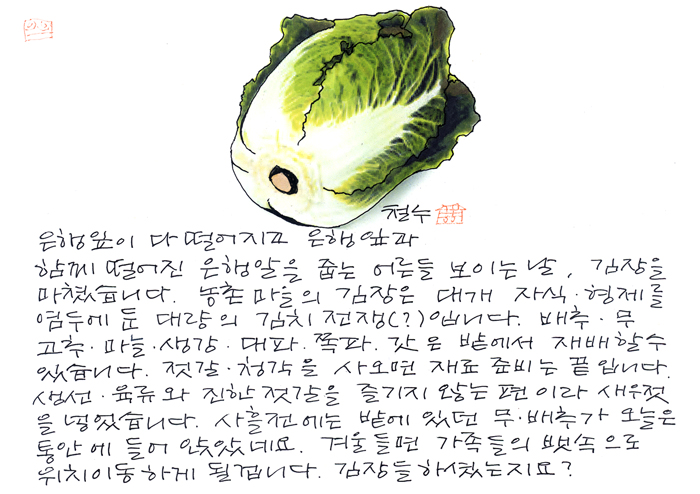 철수
은행잎이 다 떨어지고 은행잎과
함께 떨어진 은행알을 줍는 어른들 보이는 날, 김장을
마쳤습니다. 농촌마을의 김장은 대개 자식·형제를
염두에 둔 대량의 김치 전쟁(?)입니다. 배추·무
고추·마늘·생강·대파·쪽파·갓은 밭에서 재배할 수
있습니다. 젓갈·청각을 사오면 재료 준비는 끝입니다.
생선·육류와 진한 젓갈을 즐기지 않는 편이라 새우젓
을 넣었습니다. 사흘전에는 밭에 있던 무·배추가 오늘은
통안에 들어 앉았네요. 겨울들면 가족들의 뱃속으로
위치이동하게 될겁니다. 김장들 하셨는지요?